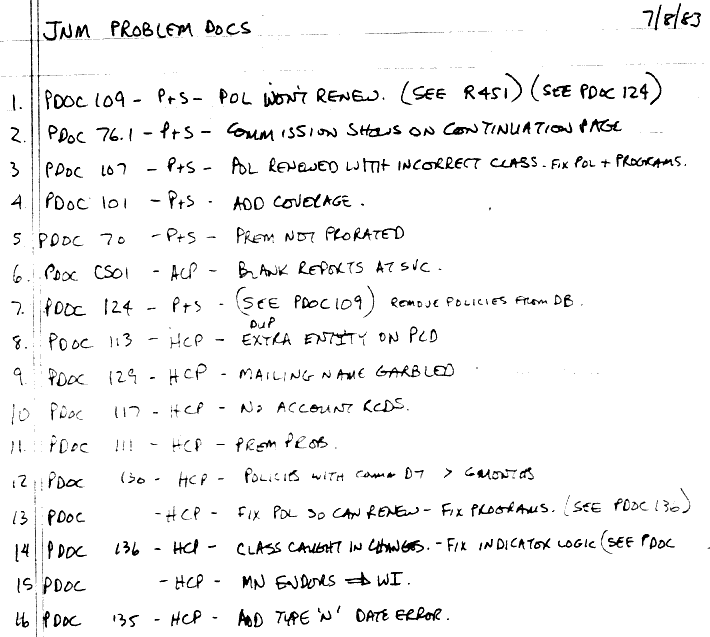 JNM PROBLEM DOCS 7/8/83
1. PDOC 109 - P+S - POL WON'T RENEW. (SEE R451) (SEE PDOC 124)
2. PDOC 76.1 - P+S - COMMISSION SHOWS ON CONTINUATION PAGE
3 PDOC 107 - P+S - POL RENEWED WITH INCORRECT CLASS. FIX POL + PROGRAMS.
4. PDOC 101 - P+S - ADD COVERAGE.
5 PDOC 70 - P+S - PREM NOT PRORATED
6. PDOC CS01 - ACP - BLANK REPORTS AT SVC.
7. PDOC 124 - P+S - (SEE PDOC 109) REMOVE POLICIES FROM DB.
DUP
8. PDOC 113 - HCP - EXTRA ENTITY ON PCD
9. PDOC 129 - HCP - MAILING NAME GARBLED
10 PDOC 117 - HCP - NO ACCOUNT RCDS.
11. PDOC 111 - HCP - PREM PROB.
12 PDOC 130 - HCP - POLICIES WITH COMM DT > 6 MONTHS
13 PDOC - HCP - FIX POL SO CAN RENEW - FIX PROGRAMS. (SEE PDOC 136)
14 PDOC 136 - HCP - CLASS CAUGHT IN CHANGES. - FIX INDICATOR LOGIC (SEE PDOC
15 PDOC - HCP - MN ENDORS ⇒ WI.
16 PDOC 135 - HCP - ADD TYPE 'N' DATE ERROR.